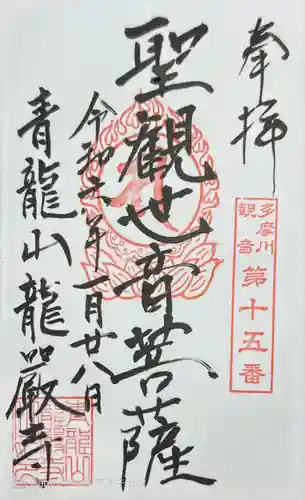 奉拝
多摩川
観音
第十五番
聖觀世音菩薩
令和六年一月廿八日
青龍山龍嚴寺